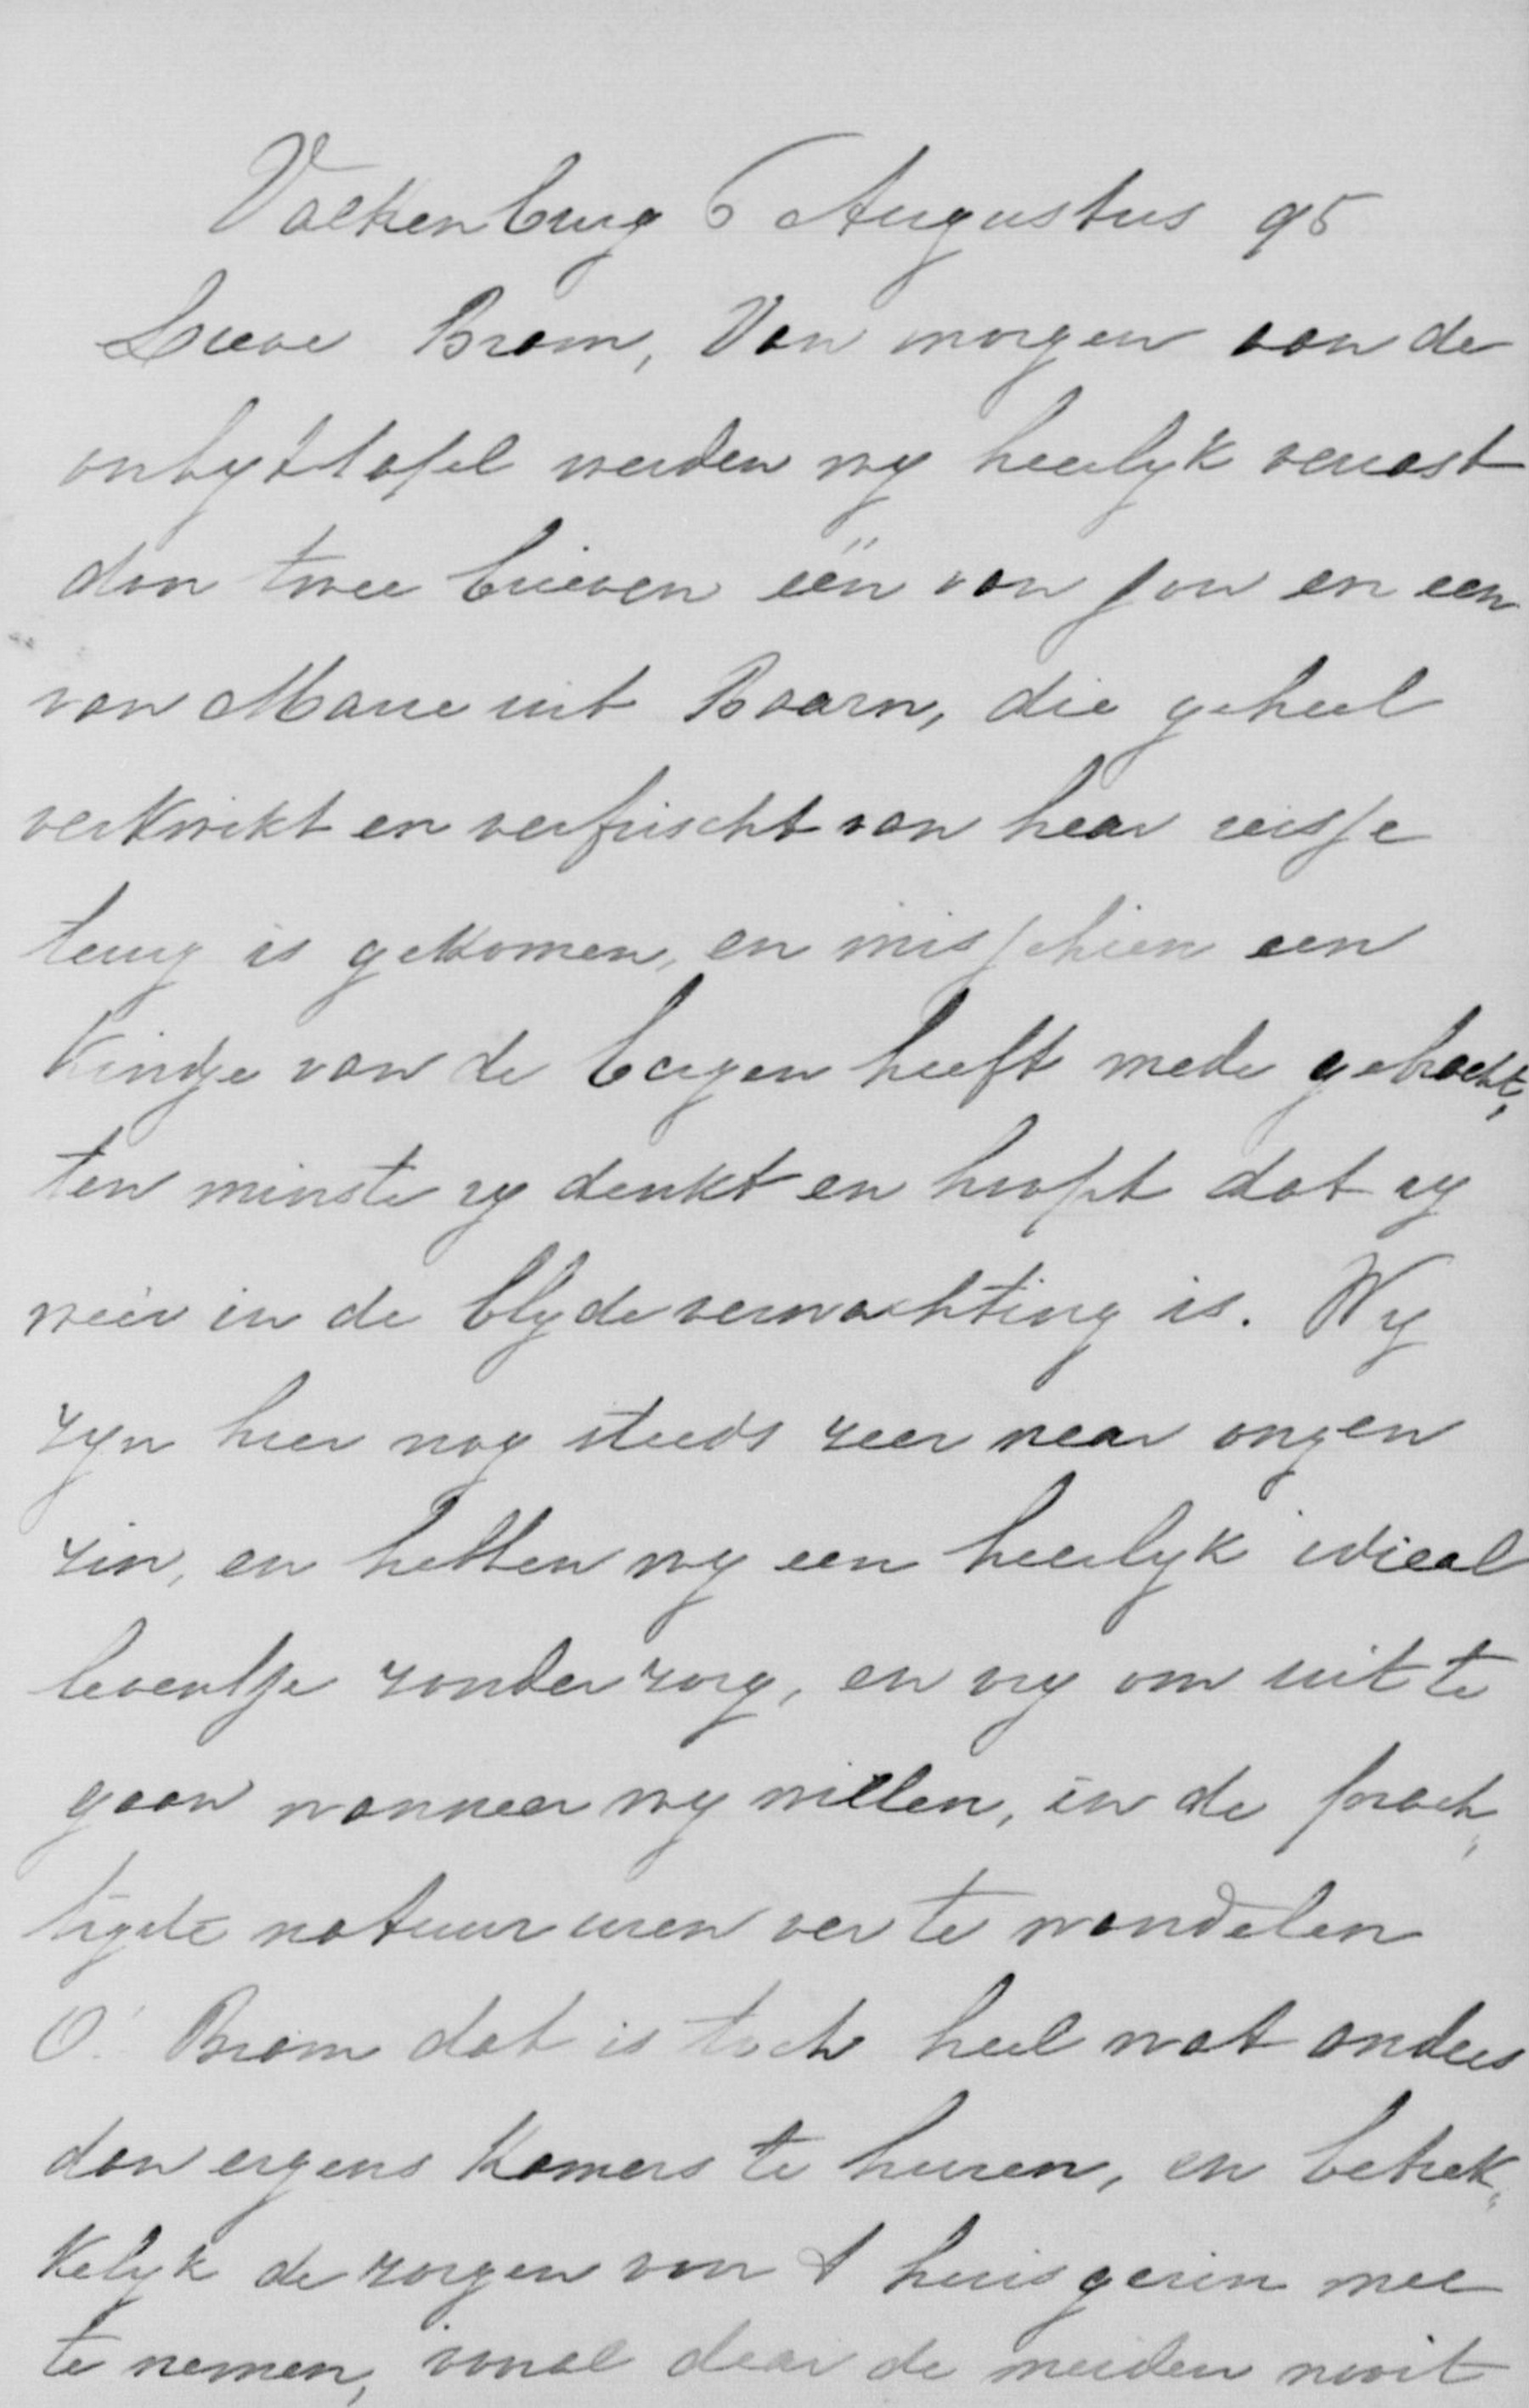 Valkenburg 6 Augustus 95
Lieve Bram, Van morgen aan de
ontbyttafel werden wy heerlyk verrast
door twee brieven eën van jou en een
van Marie uit Baarn, die geheel
verkwikt en verfrischt van haar reisje
terug is gekomen, en misschien een
Kindje van de bergen heeft mede gebracht,
ten minste zy denkt en hoopt dat zy
weêr in de blyde verwachting is. Wy
zyn hier nog steeds zeer naar onzen
zin, en hebben wy een heerlyk ideaal
leventje zonder zorg, en vry om uit te
gaan wanneer wy willen, in de prach„
tigste natuur uren ver te wandelen
O! Bram dat is toch heel wat anders
dan ergens Kamers te huren, en betrek„
Kelyk de zorgen van 't huisgezin mee
te nemen, vooral daar de meiden nooit